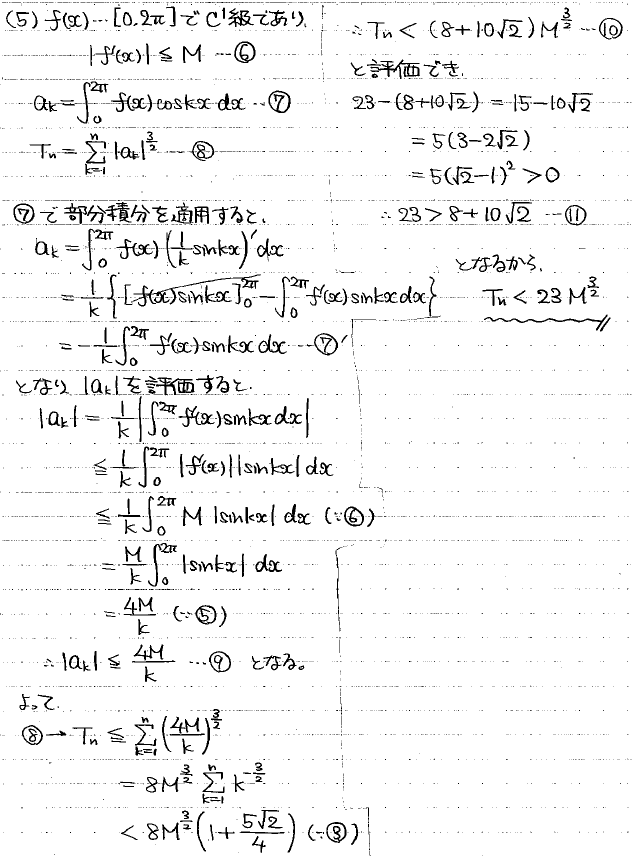 (5) f(x)…[0.2π]でC¹級であり、
|f'(x)| ≦ M …⑥
a_k = ∫_0^{2π} f(x)coskx dx …⑦
T_n = Σ_{k=1}^{n} |a_k|^{3/2} …⑧
⑦で部分積分を適用すると、
a_k = ∫_0^{2π} f(x)(1/k sinkx)'dx
= 1/k {[f(x)sinkx]_0^{2π} - ∫_0^{2π} f'(x)sinkxdx}
= -1/k ∫_0^{2π} f'(x)sinkx dx …⑦'
となり |a_k|を評価すると、
|a_k| = 1/k |∫_0^{2π} f'(x)sinkx dx|
≦ 1/k ∫_0^{2π} |f'(x)||sinkx| dx
≦ 1/k ∫_0^{2π} M |sinkx| dx (∵⑥)
= M/k ∫_0^{2π} |sinkx| dx
= 4M/k (∵⑤)
∴ |a_k| ≦ 4M/k …⑨ となる。
よって、
⑧→ T_n ≦ Σ_{k=1}^{n} (4M/k)^{3/2}
= 8M^{3/2} Σ_{k=1}^{n} k^{-3/2}
< 8M^{3/2} (1 + 5√2/4) (∵③)
∴ T_n < (8+10√2) M^{3/2} …⑩
と評価でき、
23-(8+10√2) = 15-10√2
= 5(3-2√2)
= 5(√2-1)² > 0
∴ 23 > 8+10√2 …⑪
となるから、
T_n < 23M^{3/2}